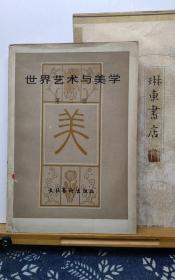 世界艺术与美学
美
文化艺术出版社
琳東書店